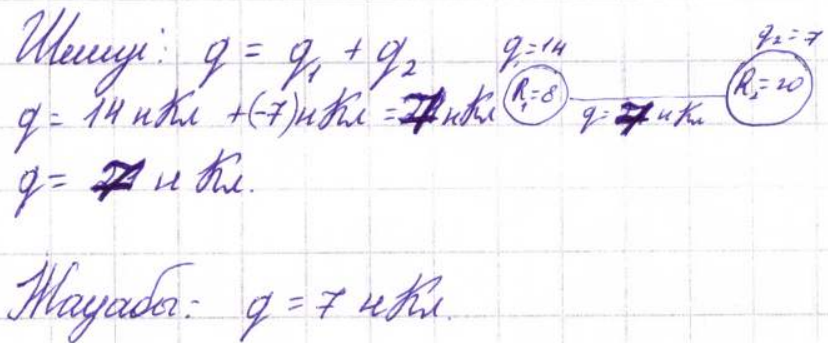 Шешуі: q = q₁ + q₂
q₁=14
q₂=7
q = 14 нКл +(-7)нКл = 7 нКл
R₁=8
q= 7 нКл
R₂=20
q = 7 н Кл.
Жауабы: q = 7 нКл.